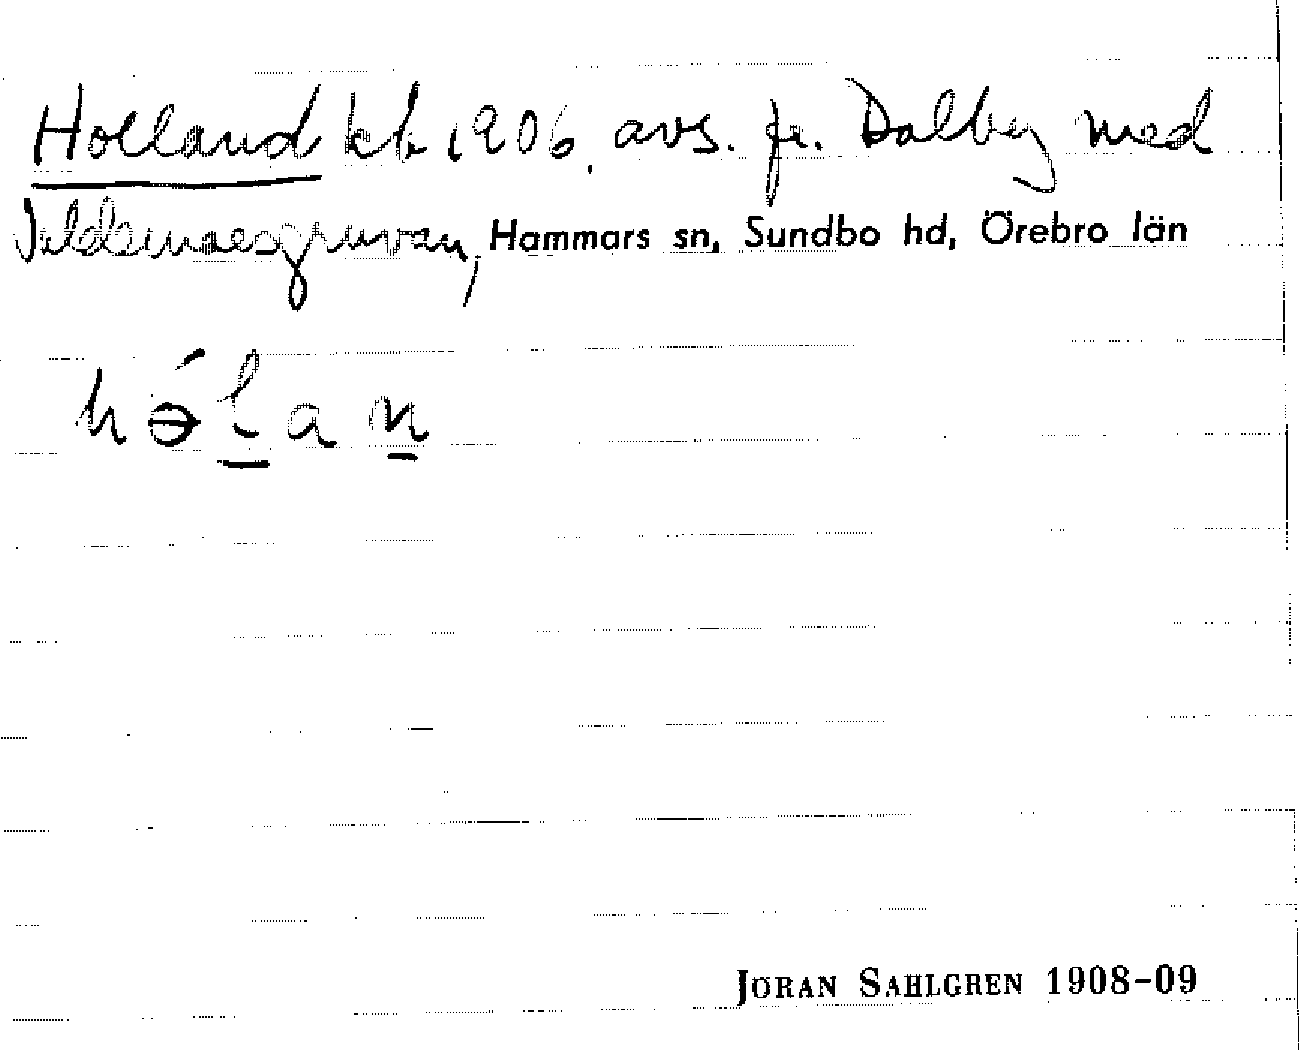 Holland kb 1906, avs. fr. Dalby med
Valdemarsgruvan, Hammars sn, Sundbo hd, Örebro län
hɵ́lan
JÖRAN SAHLGREN 1908-09